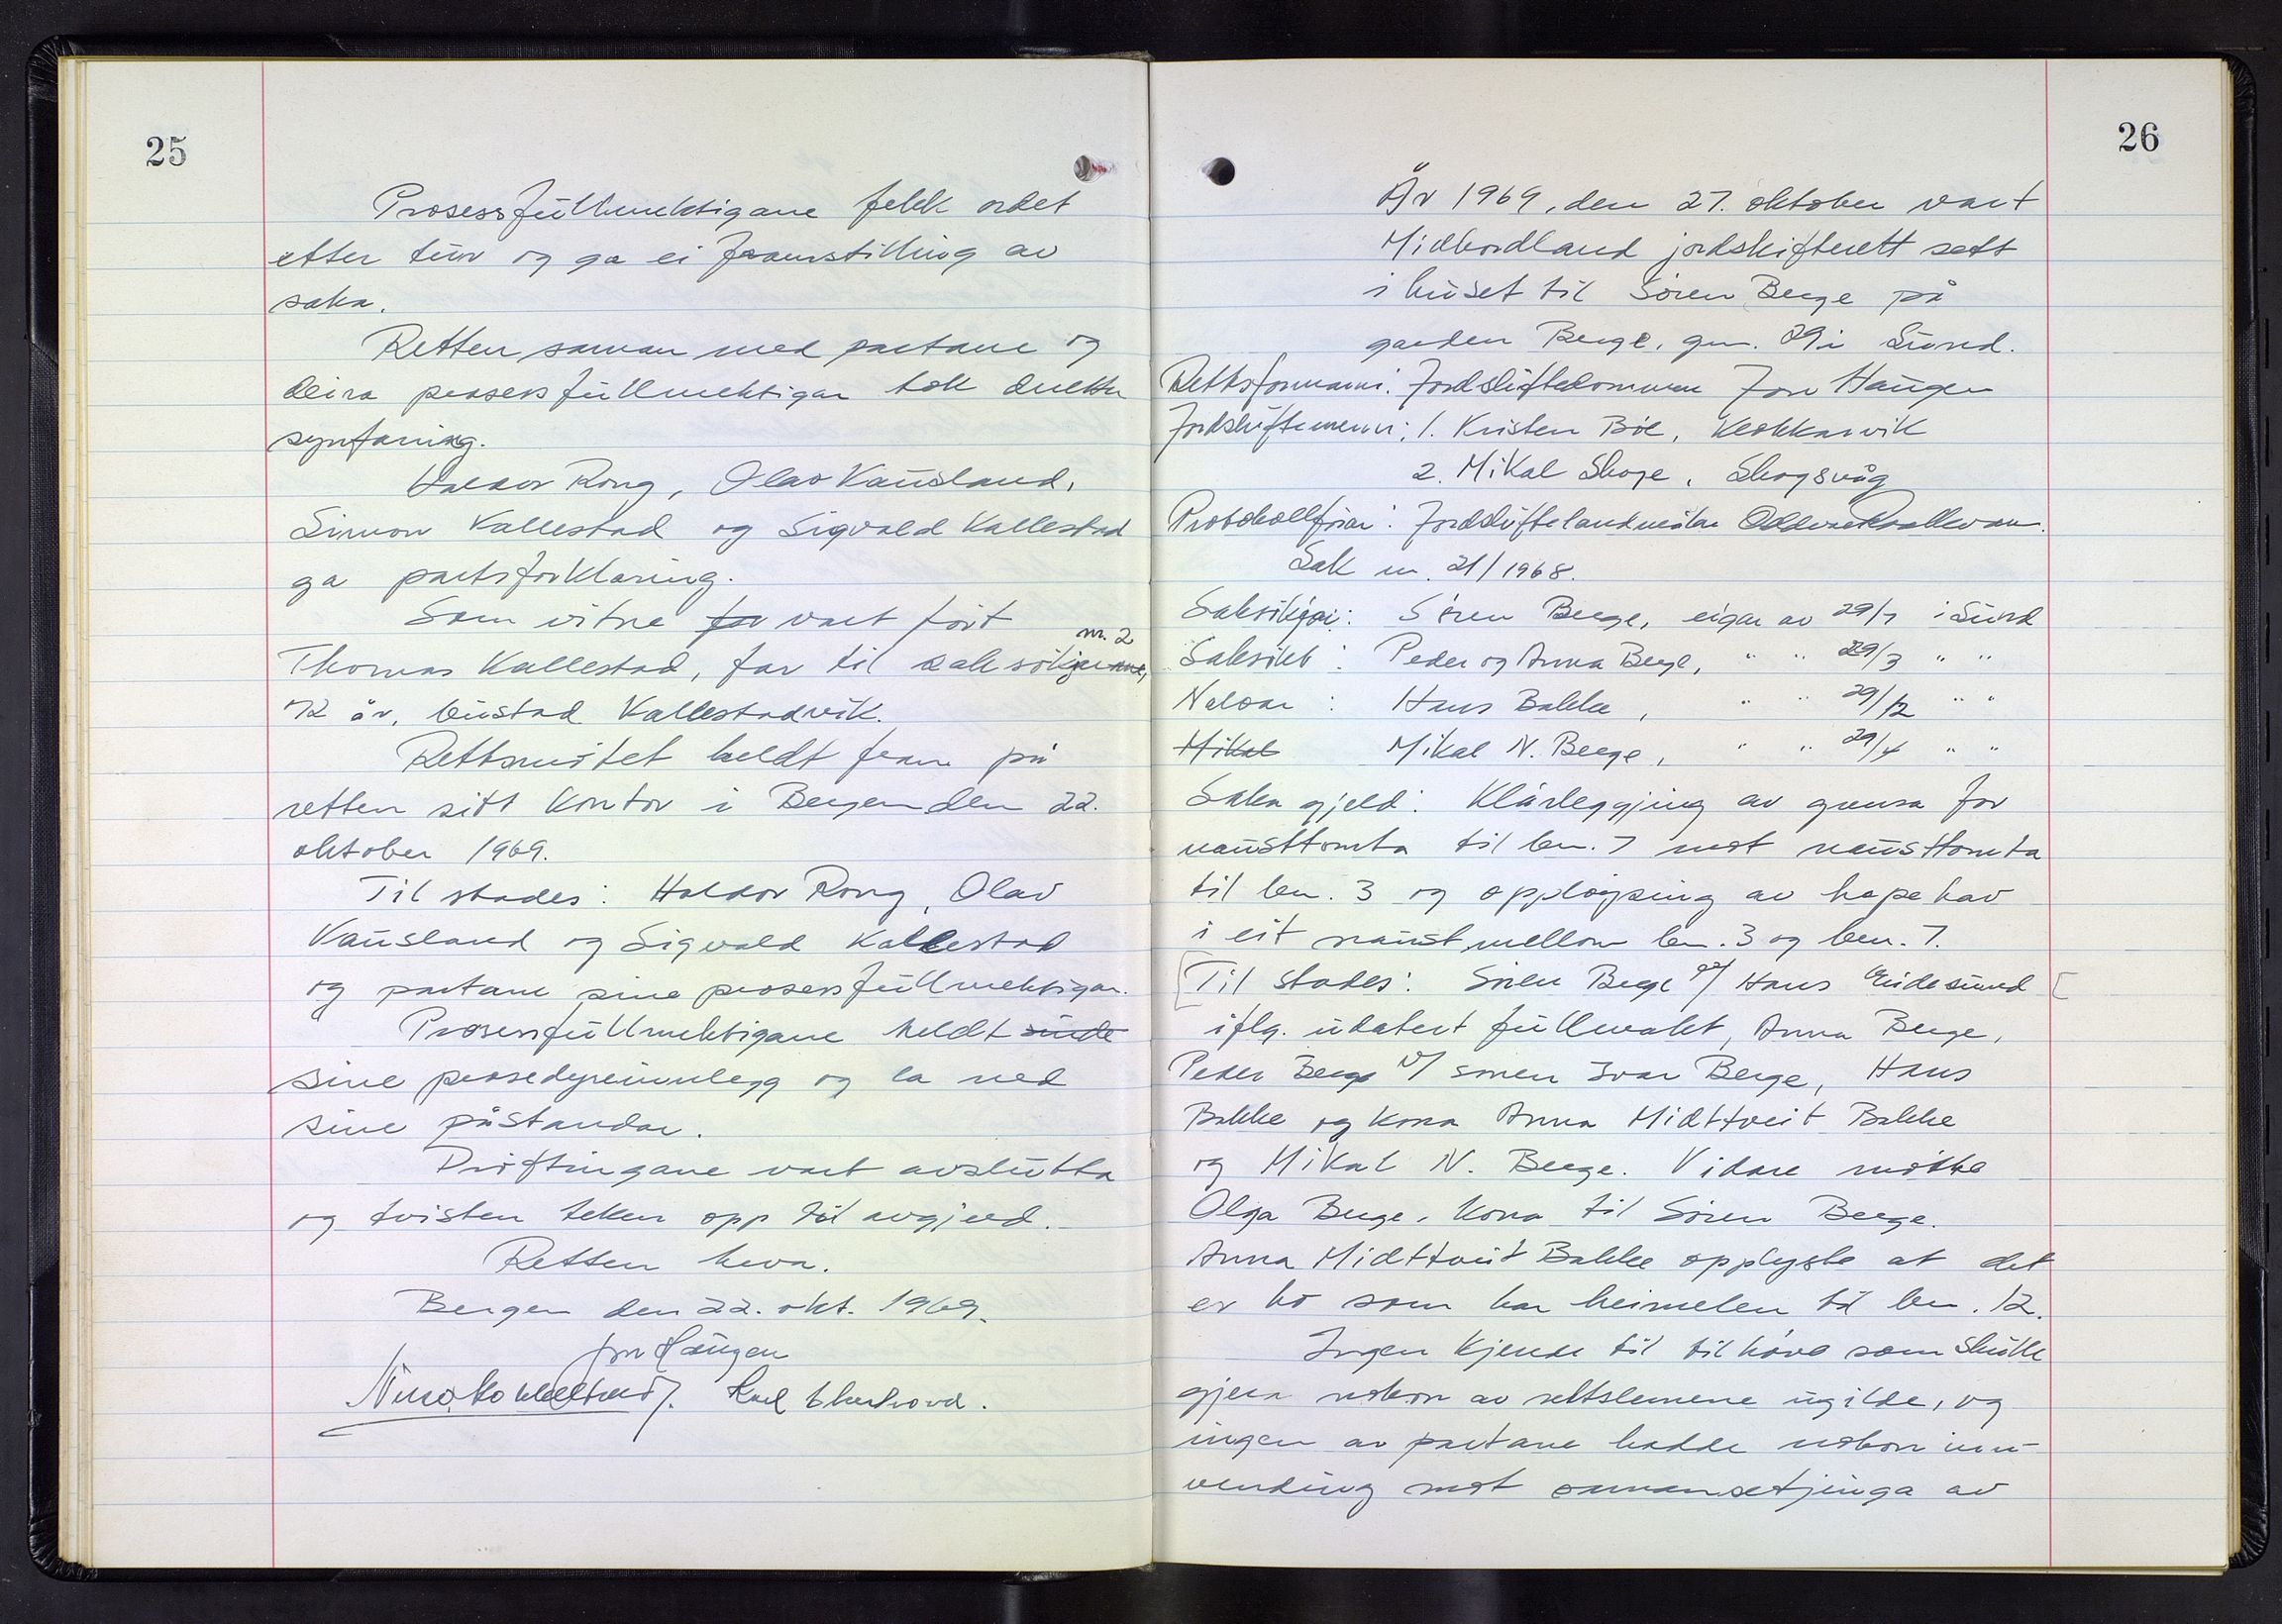 25
Prosessfullmektigane fekk ordet
etter tur og ga ei framstilling av
saka.
Retten saman med partane og
deira prosessfullmektigar tok deretter
synfaring.
Haldor Rong, Olav Vausland,
Simon Kallestad og Sigvald Kallestad
ga partsforklaring.
Som vitne for vart ført
nr. 2
Thomas Kallestad, far til saksøkjarane,
72 år, bustad Kallestadvik.
Rettsmøtet heldt fram på
retten sitt kontor i Bergen den 22.
oktober 1969.
Til stades: Haldor Rong, Olav
Vausland og Sigvald Kallestad
og partane sine prosessfullmektigar.
Prosessfullmektigane heldt
sine prosedyreinnlegg og la ned
sine påstandar.
Drøftingane vart avslutta
og tvisten teken opp til avgjerd.
Retten heva.
Bergen den 22. okt. 1969.
Jon Haugen
26
År 1969, den 27. oktober vart
Midhordland jordskifterett sett
i huset til Søren Berge på
garden Berge, gnr. 29 i Sund.
Rettsformann: Jordskiftedommar Jon Haugen
Jordskiftemenn: 1. Kristen Bøe, Klokkarvik
2. Mikal Skoge, Skogsvåg
Protokollførar: Jordskiftelandmålar Oddvar
Sak nr. 21/1968.
Saksøkjar: Søren Berge, eigar av 29/7 i Sund
Saksøkt: Peder og Anna Berge, " " 29/3 " "
Naboar: Hans Bakke, " " 29/12 " "
Mikal Mikal N. Berge, " " 29/4 " "
Saka gjeld: Klårleggjing av grensa for
nausttomta til bnr. 7 mot nausttomta
til bnr. 3 og oppløysing av hopehav
i eit naust mellom bnr. 3 og bnr. 7.
[Til stades: Søren Berge v/ Hans Eidesund [
iflg. udatert fullmakt, Anna Berge,
Peder Berge v/ sonen Ivar Berge, Hans
Bakke og kona Anna Midttveit Bakke
og Mikal N. Berge. Vidare møtte
Olga Berge, kona til Søren Berge.
Anna Midttveit Bakke opplyste at det
er ho som har heimelen til bnr. 12.
Ingen kjende til tilhøve som skulle
gjera nokon av rettslemene ugilde, og
ingen av partane hadde nokon inn-
vending mot samansetjinga av